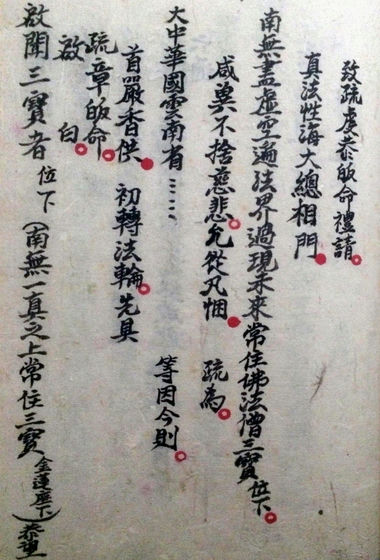 致疏虔恭皈命禮請
真法性海大總相門
南無盡虛空遍法界過現未來常住佛法僧三寶位下
咸冀不捨慈悲允從凡悃　疏為
大中華國雲南省……　等因今則
首嚴香供　初轉法輪先具
疏章皈命
啟白
啟聞三寶者位下（南無一真之上常住三寶金蓮座下）恭望